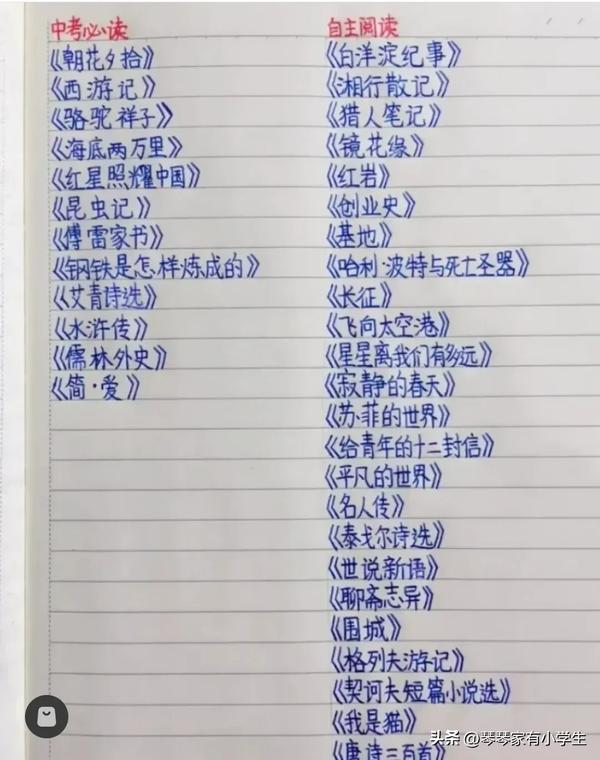 中考必读
《朝花夕拾》
《西游记》
《骆驼祥子》
《海底两万里》
《红星照耀中国》
《昆虫记》
《傅雷家书》
《钢铁是怎样炼成的》
《艾青诗选》
《水浒传》
《儒林外史》
《简·爱》
自主阅读
《白洋淀纪事》
《湘行散记》
《猎人笔记》
《镜花缘》
《红岩》
《创业史》
《基地》
《哈利·波特与死亡圣器》
《长征》
《飞向太空港》
《星星离我们有多远》
《寂静的春天》
《苏·菲的世界》
《给青年的十二封信》
《平凡的世界》
《名人传》
《泰戈尔诗选》
《世说新语》
《聊斋志异》
《围城》
《格列夫游记》
《契诃夫短篇小说选》
《我是猫》
《唐诗三百首》
头条 @琴琴家有小学生